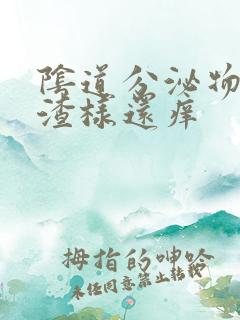 陰道分泌物
渣樣還痒
拇指的呻吟
未经同意禁止转载